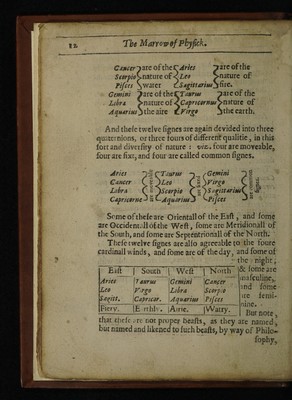 12 The Marrow of Physick.
Cancer } are of the { Aries } are of the
Scorpio } nature of { Leo } nature of
Pisces } water { Sagittarius } fire.
Gemini } are of the { Taurus } are of the
Libra } nature of { Capricornus } nature of
Aquarius } the aire { Virgo } the earth.
And these twelve signes are again devided into three
quaternions, or three fours of different qualitie, in this
sort and diversity of nature : viz. four are moveable,
four are fixt, and four are called common signes.
Aries } { Taurus } { Gemini
Cancer } { Leo } { Virgo
Libra } { Scorpio } { Sagittarius
Capricorne } { Aquarius } { Pisces
signes.
Some of these are Orientall of the East, and some
are Occidentall of the West, some are Meridionall of
the South, and some are Septentrionall of the North.
These twelve signes are also agreeable to the foure
cardinall winds, and some are of the day, and some of
the night,
East | South | West | North
Aries | Taurus | Gemini | Cancer
Leo | Virgo | Libra | Scorpio
Sagitt. | Capricor. | Aquarius | Pisces
Fiery. | Earthly. | Airie. | Watry.
& some are
masculine,
and some
are femi-
nine.
But note,
that these are not proper beasts, as they are named,
but named and likened to such beasts, by way of Philo-
sophy,